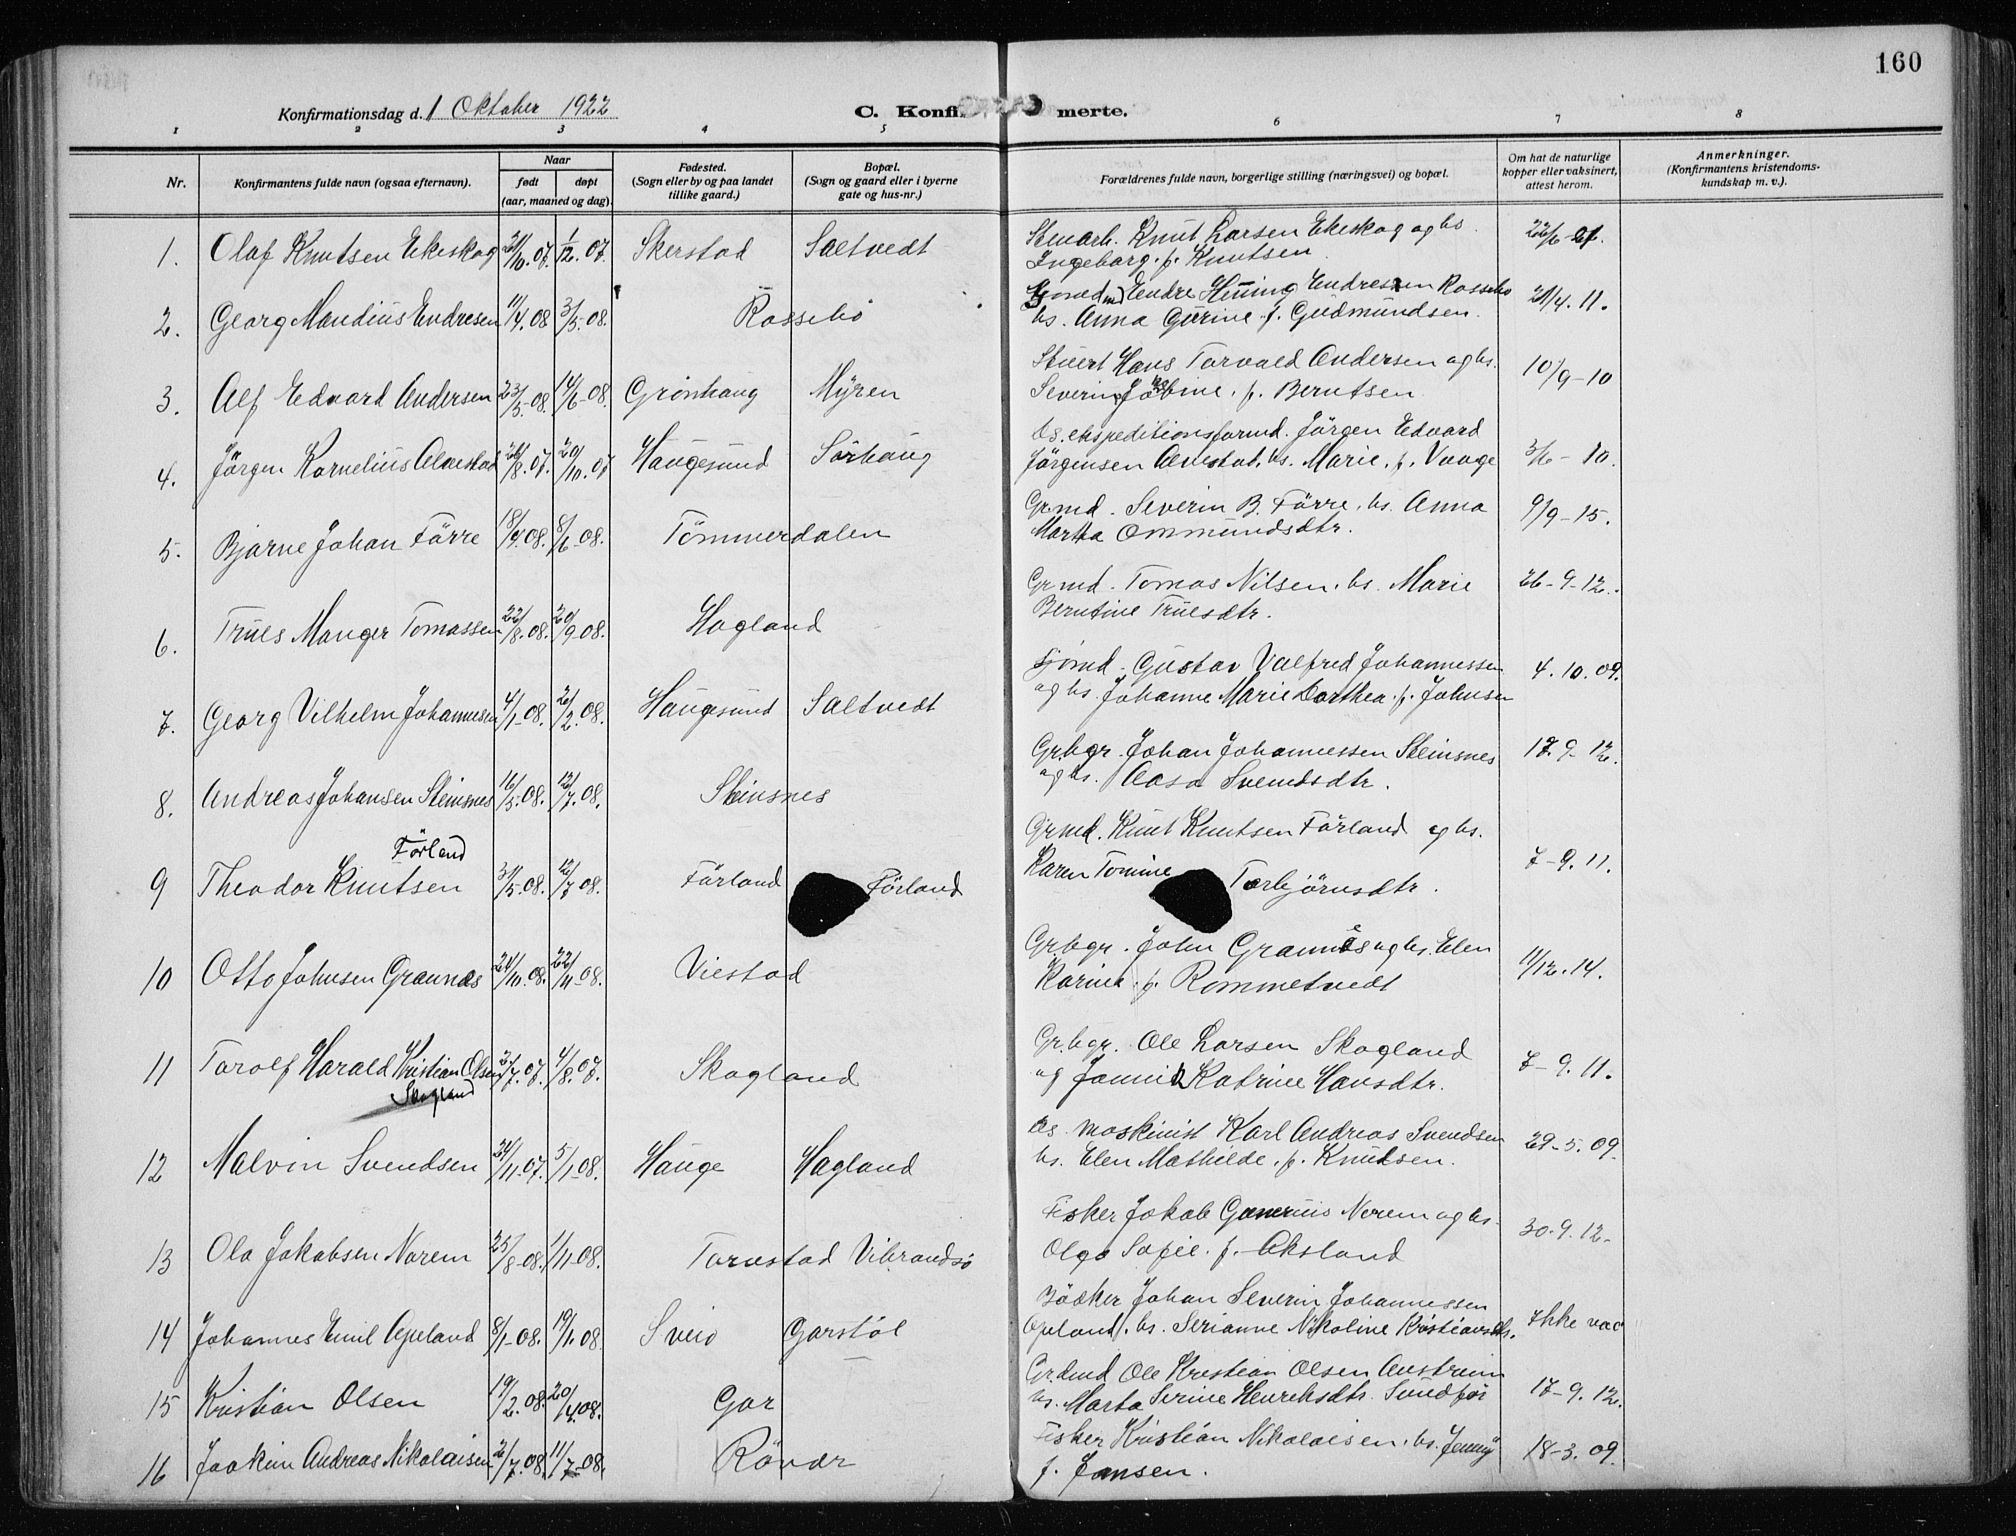 160
Konfirmationsdag d. 1 Oktober 1922
C. Konfi merte.
1 2 3 4 5 6 7 8
Nr.
Konfirmantens fulde navn (ogsaa efternavn).
Naar
født døpt
(aar, maaned og dag).
Fødested.
(Sogn eller by og paa landet
tillike gaard.)
Bopæl.
(Sogn og gaard eller i byerne
gate og hus-nr.)
Forældrenes fulde navn, borgerlige stilling (næringsvei) og bopæl.
Om hat de naturlige
kopper eller vaksinert,
attest herom.
Anmerkninger.
(Konfirmantens kristendoms-
kundskap m. v.).
1. Olaf Knutsen Ekeskog 21/10.07. 1/12.07. Skerstad Saltvedt
Stuarb. Knut Larsen Ekeskog og hs.
Ingeborg. f. Knutsen 22/6-21.
2. Georg Mandius Endresen 11/4.08 3/5.08. Rossebø
Endre Henning Endresen Rossebø
hs. Anna Gurine f. Gudmundsen. 21/4.11.
3. Alf Edvard Andersen 23/5.08. 14/6-08. Grønhaug Myren
Stuert Hans Torvald Andersen og hs.
Severine f. Berntsen 10/9-10
4. Jörgen Kornelius Alvestad 26/8.07. 20/10.07 Haugesund Sörhaug
bs. ekspeditionsformd. Jörgen Edvard
Jörgensen Alvestad. hs. Marie. f. Vaage 3/6-10.
5. Bjarne Johan Förre 18/4.08. 8/6-08. Tömmerdalen
Grmd. Severin B. Förre. hs. Anna
Martha Ommundsdtr. 9/9-15.
6. Truls Mauger Tomassen 22/8.08. 20/9.08. Hagland
Grmd. Tomas Nilsen. hs. Marie
Berntine Truesdtr. 26-9-12.
7. Georg Vilhelm Johannesen 4/1-08. 2/2.08. Haugesund Saltvedt
Sjömd. Gustav Valfred Johannessen
og hs. Johanne Marie Dorthea. f. Johnsen 4.10.09.
8. Andreas Johansen Steinsnes 16/5.08. 12/7.08. Steinsnes
Grbgr. Johan Johannessen Steinsnes
og hs. Aasa Svendsdtr. 17.9-12.
Förland
9 Theodor Knutsen 31/5.08. 12/7.08. Förland Förland
Grmd. Knut Knutsen Förland og hs.
Karen Tomine Torbjörnsdtr. 7-9.11.
10 Otto Johnsen Grannes 24/10.08. 22/11-08. Viestad
Grbgr. John Grannes og hs. Elen
Karine. f. Rommetvedt 11/12.14.
11 Torolf Harald Kristian Olsen 27/7.07. 4/8.07. Skogland
Skogland
Grbgr. Ole Larsen Skogland
og Katrine Hansdtr. 7-9.11.
12 Malvin Svendsen 24/11-07. 5/1-08. Hauge Hagland
bs. maskinist Karl Andreas Svendsen
hs. Elen Mathilde. f. Knudsen. 29-5.09.
13 Ola Jakobsen Norem 25/8-08. 1/11-08. Torvestad Vibrandsö
Fisker Jakob Gunerius Norem og hs.
Olga Sofie. f. Aksland 30.9.12.
14 Johannes Emil Apeland 8/1-08. 19/1.08. Sveio Garstöl
Bödker Johan Severin Johannessen
Apeland. hs. Serianne Nikoline Kristiansdtr. Ikke vac
15 Kristian Olsen 19/2.08. 20/4.08. Gar
Grdmd Ole Kristian Olsen Austreim
hs. Marta Serine Henriksdtr. Sundför 17-9.12.
16 Joakim Andreas Nikolaisen 2/7.08. 11/7-08. Rövær
Fisker Kristian Nikolaisen. hs. Jenny
f. Jansen. 18-3.09.